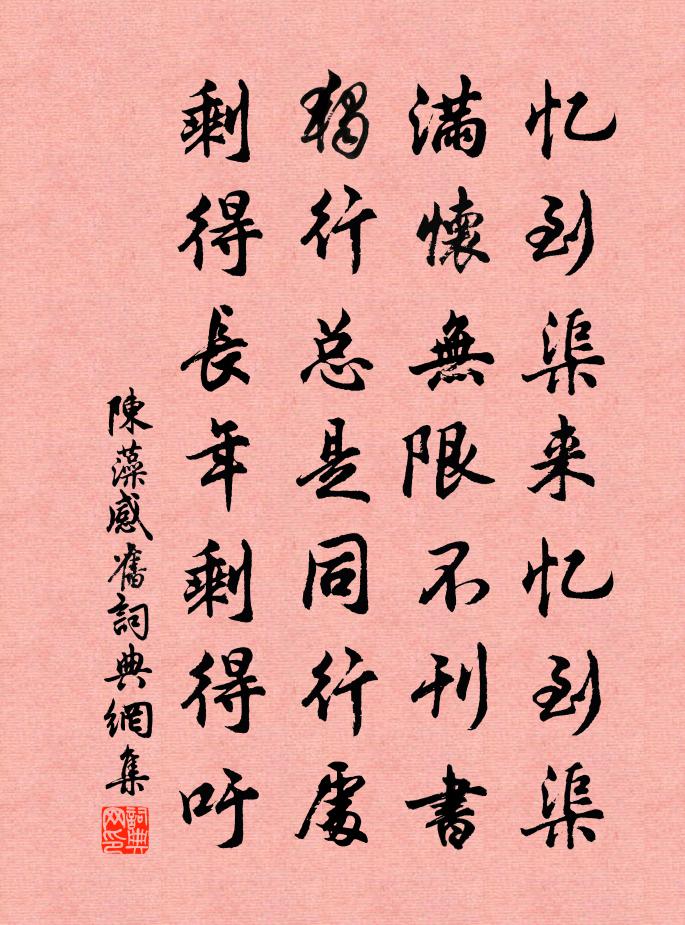 忆到渠来忆到渠
满懷無限不刊書
獨行总是同行處
剩得長年剩得吁
陳藻感舊詞典網集
詞典网印